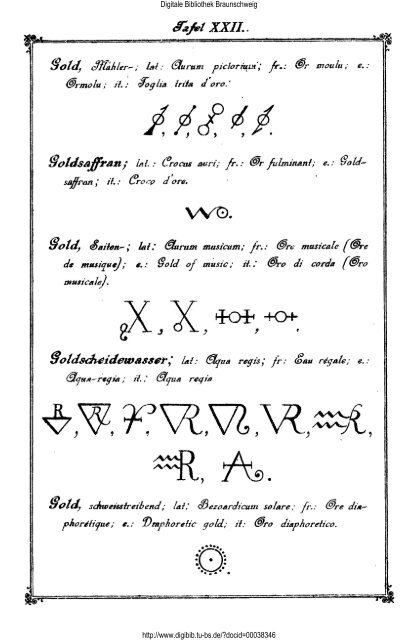 Digitale Bibliothek Braunschweig
Tafel XXII.
Gold, Mahler-; lat: Aurum pictorium; fr.: Or moulu; e.:
Ormolu; it.: Foglia trita d'oro.
Goldsaffran; lat.: Crocus auri; fr.: Or fulminant; e.: Gold-
saffran; it.: Croco d'oro.
Gold, Saiten-; lat: Aurum musicum; fr.: Ore musicale (Ore
de musique); e.: Gold of music; it.: Oro di corda (Oro
musicale).
Goldscheidewasser; lat: Aqua regis; fr: Eau régale; e.:
Aqua-regia; it.: Aqua regia
Gold, schweisstreibend; lat: Bezoardicum solare; fr.: Ore dia-
phorétique; e.: Diaphoretic gold; it: Oro diaphoretico.
http://www.digibib.tu-bs.de/?docid=00038346